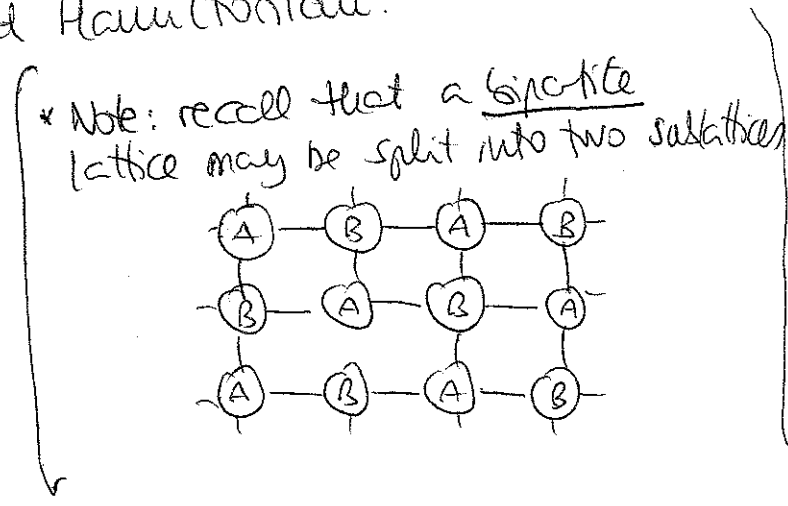 d Hamiltonian.
* Note: recall that a bipatite
lattice may be split into two sublattices
A B A B
B A B A
A B A B